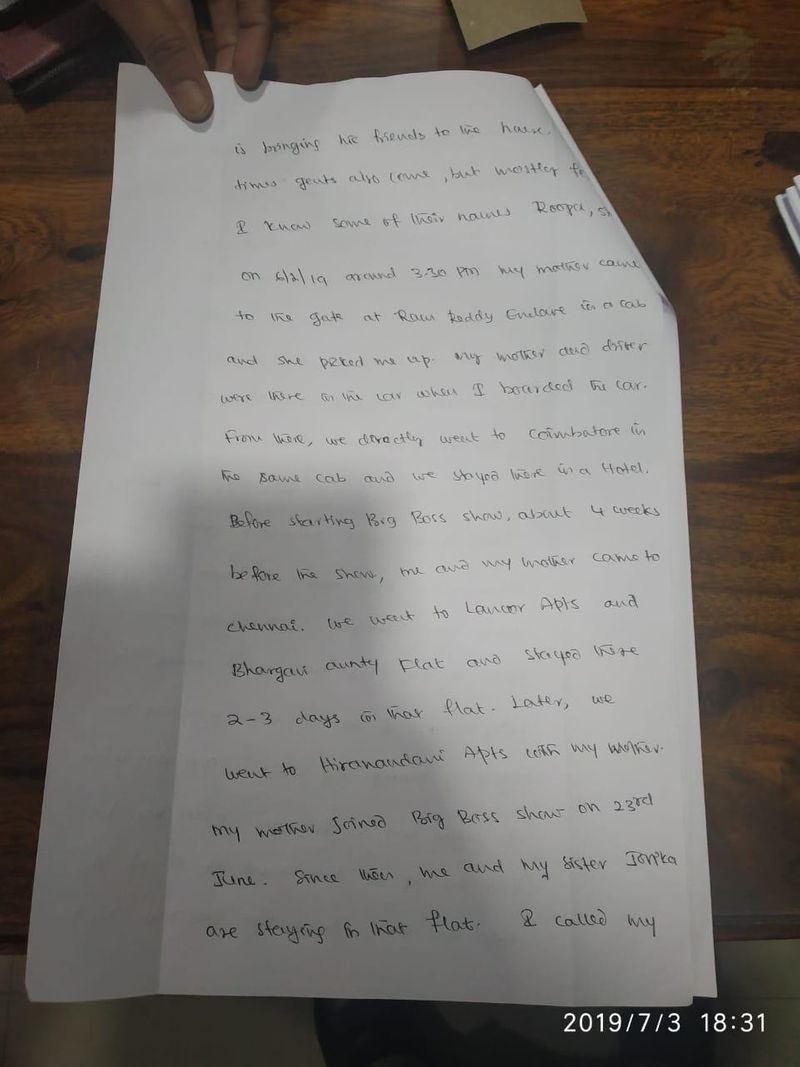 is bringing his friends to the house.
times gents also come, but mostly
I know some of their names Roopa,
on 6/2/19 around 3.30 pm my mother came
to the gate at Ram Reddy Enclave in a cab
and she picked me up. My mother and driver
were there in the car when I boarded the car.
From there, we directly went to Coimbatore in
the same cab and we stayed there in a Hotel.
Before starting Big Boss show, about 4 weeks
before the show, me and my mother came to
chennai. We went to Lancor Apts and
Bhargavi aunty Flat and stayed there
2-3 days in that flat. Later, we
went to Hiranandani Apts with my mother.
My mother Joined Big Boss show on 23rd
June. Since then, me and my sister
are staying in that flat. I called my
2019/7/3 18:31